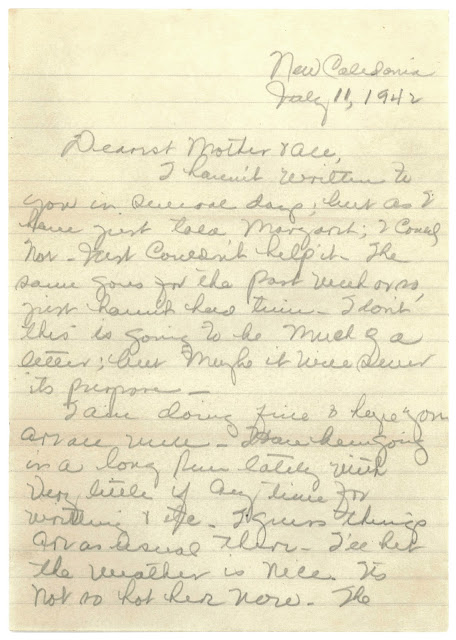 New Caledonia
July 11, 1942
Dearest Mother & all,
I haven't written to
you in several days; but as I
have just told Margaret; I could
not - Just couldn't help it. The
same goes for the past week or so,
just haven't had time - I don't
this is going to be much of a
letter; but maybe it will serve
its purpose -
I am doing fine & hope you
are well - I have been going
in a long run lately with
very little if any time for
writing & etc. - I guess things
are as usual there - I'll bet
the weather is nice. Its
not so hot here now. - The